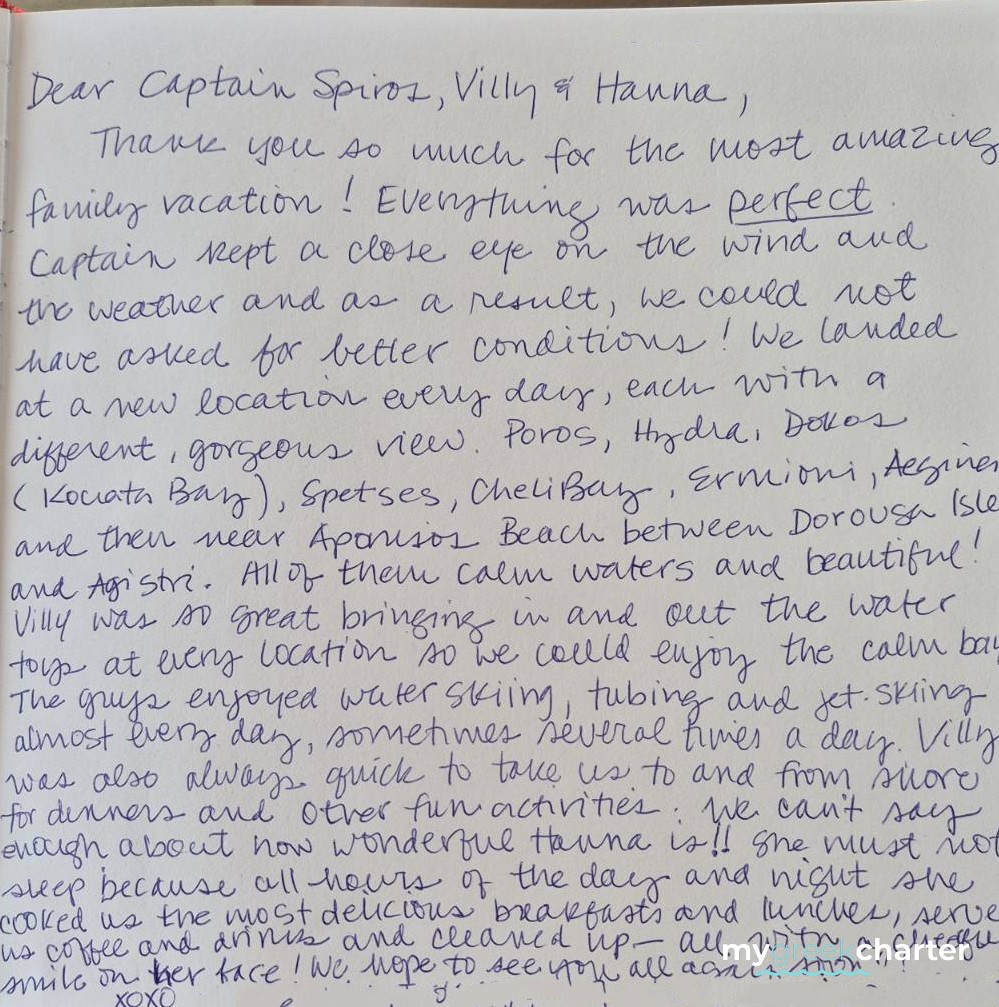 Dear Captain Spiros, Villy & Hanna,
Thank you so much for the most amazing
family vacation! Everything was perfect.
Captain kept a close eye on the wind and
the weather and as a result, we could not
have asked for better conditions! We landed
at a new location every day, each with a
different, gorgeous view. Poros, Hydra, Dokos
(Kouata Bay), Spetses, Cheli Bay, Ermioni, Aegina
and then near Aponisos Beach between Dorousa Isle
and Agistri. All of them calm waters and beautiful!
Villy was so great bringing in and out the water
toys at every location so we could enjoy the calm bay
The guys enjoyed water skiing, tubing and jet-skiing
almost every day, sometimes several times a day. Villy
was also always quick to take us to and from shore
for dinners and other fun activities. We can't say
enough about how wonderful Hanna is!! She must not
sleep because all hours of the day and night she
cooked us the most delicious breakfasts and lunches, serve
us coffee and drinks and cleaned up - all with a
smile on her face! We hope to see you all again soon!!
XOXO
mygreekcharter